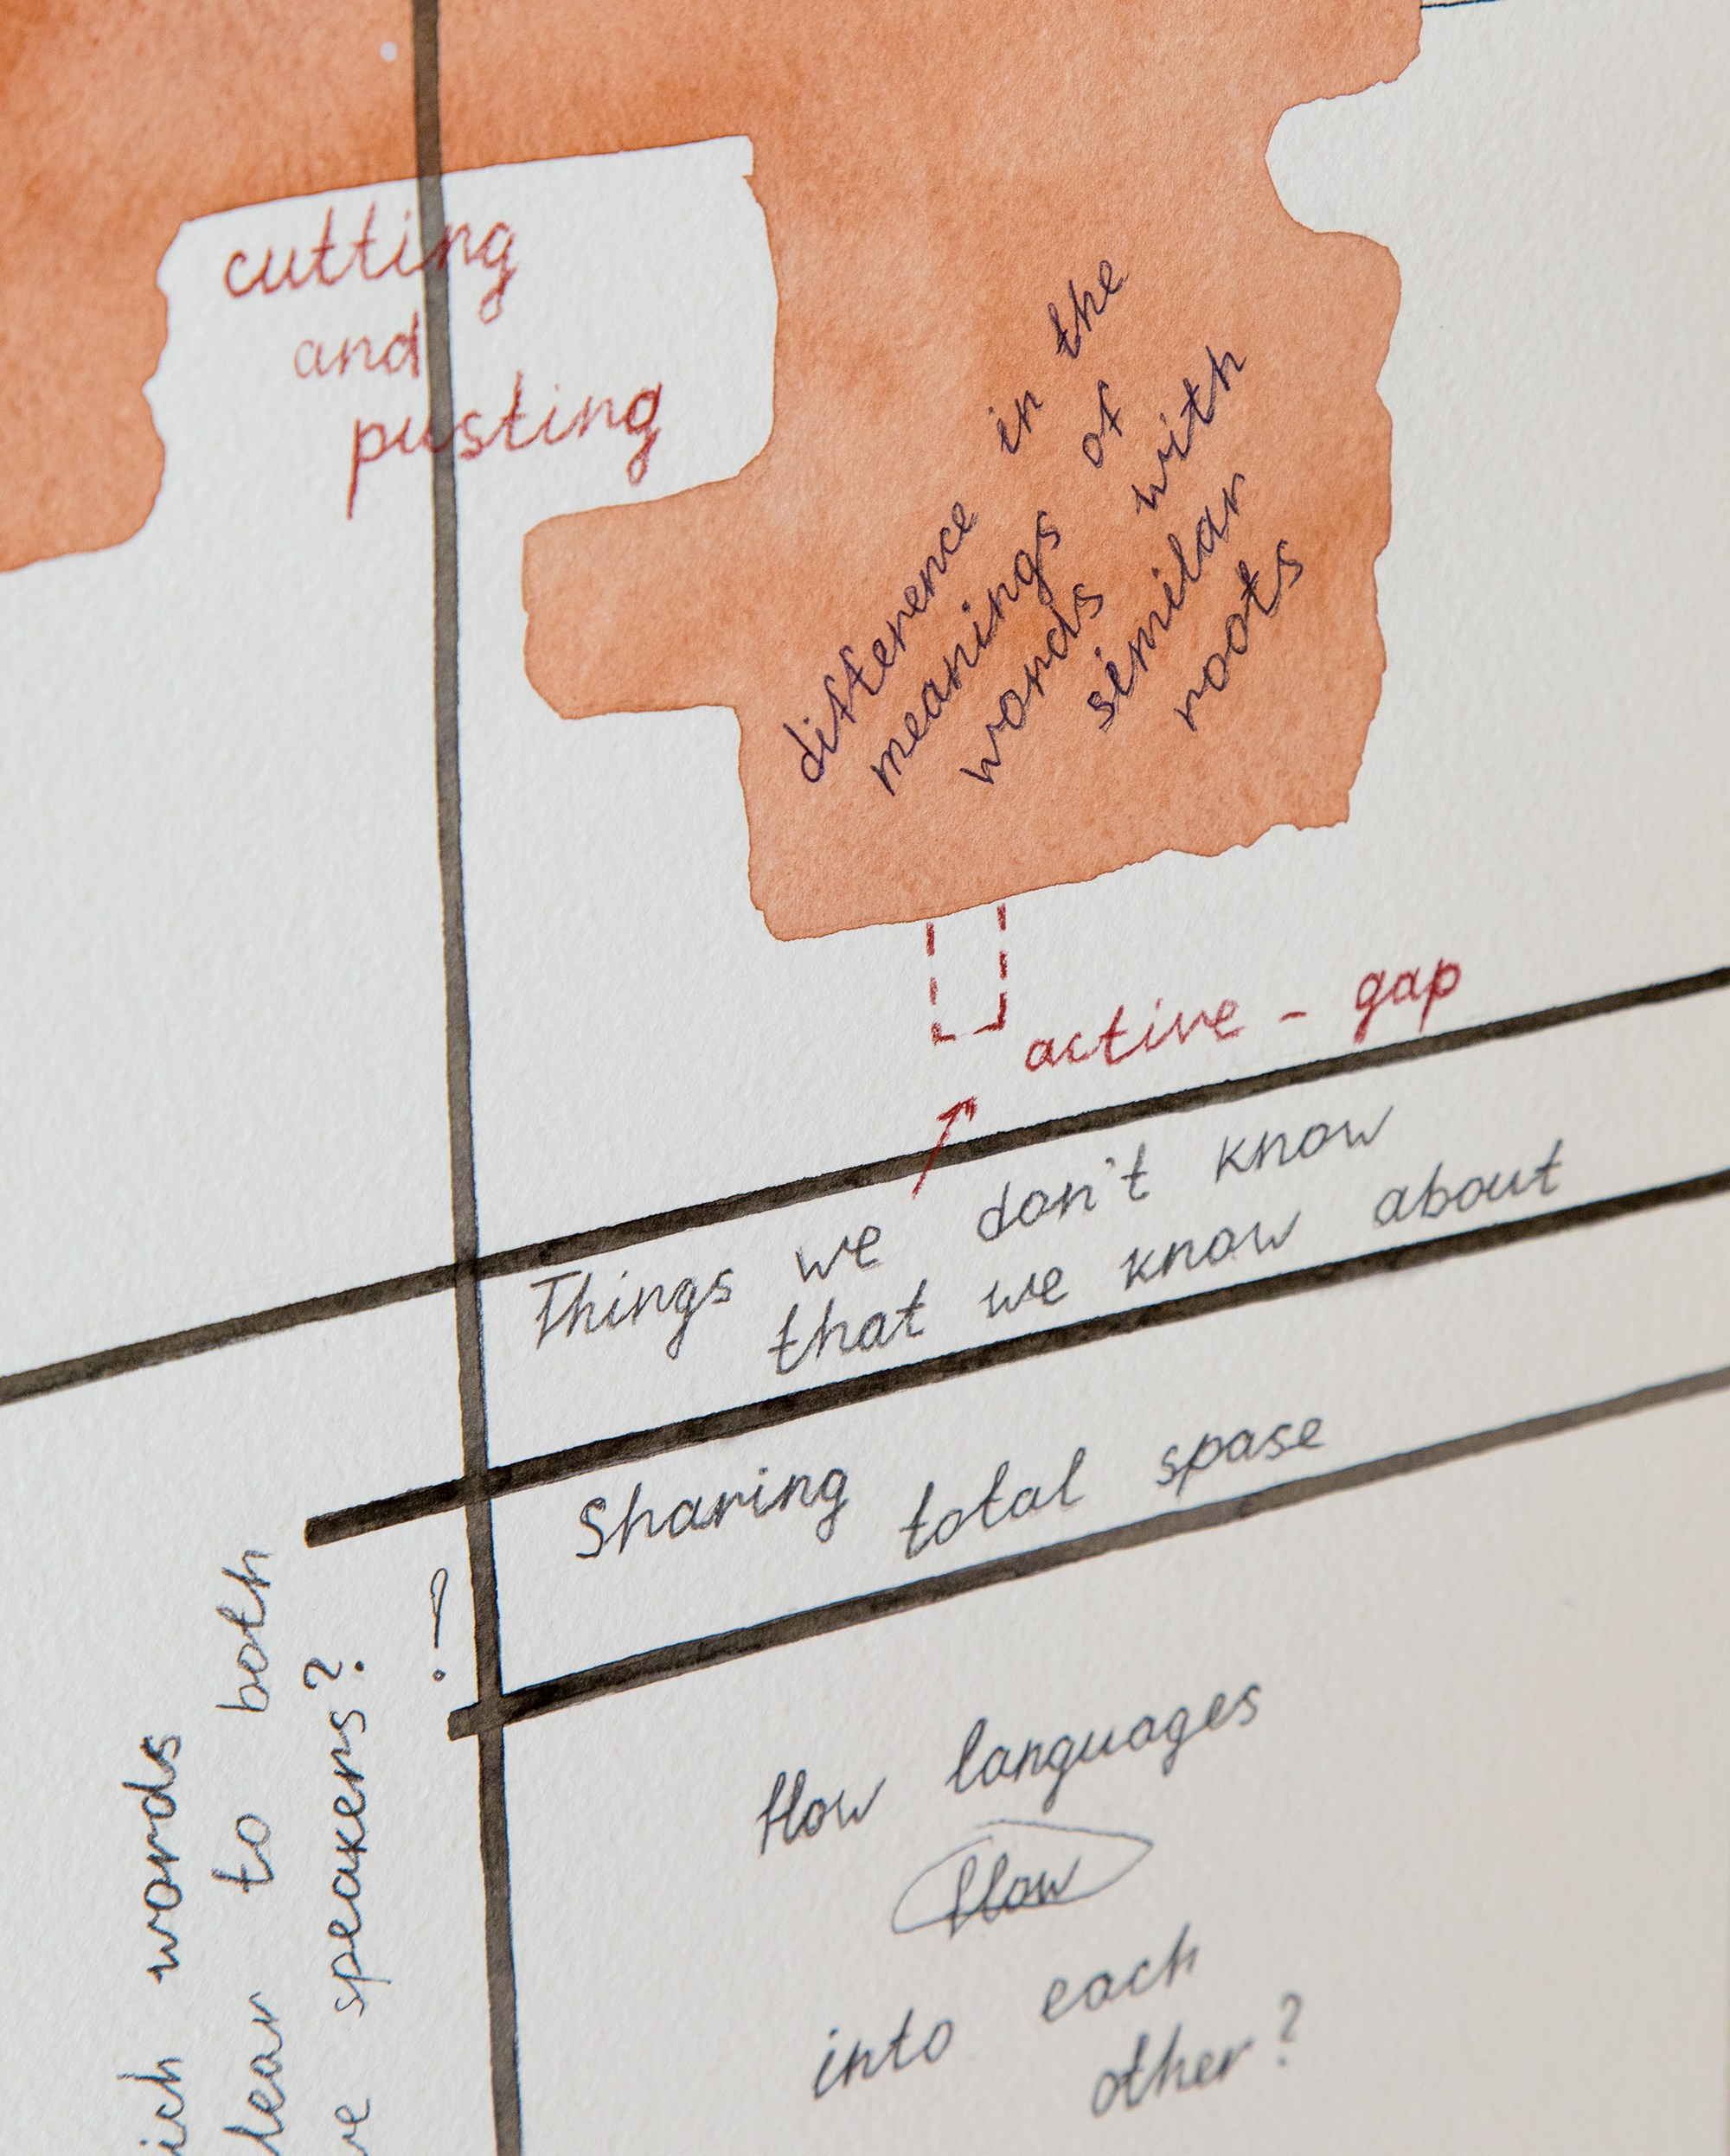 cutting
and
pusting
difference in the
meanings of
words with
similar
roots
active - gap
Things we don't know
that we know about
Sharing total spase
How languages
flow
into each
other?
words
to both
speakers?